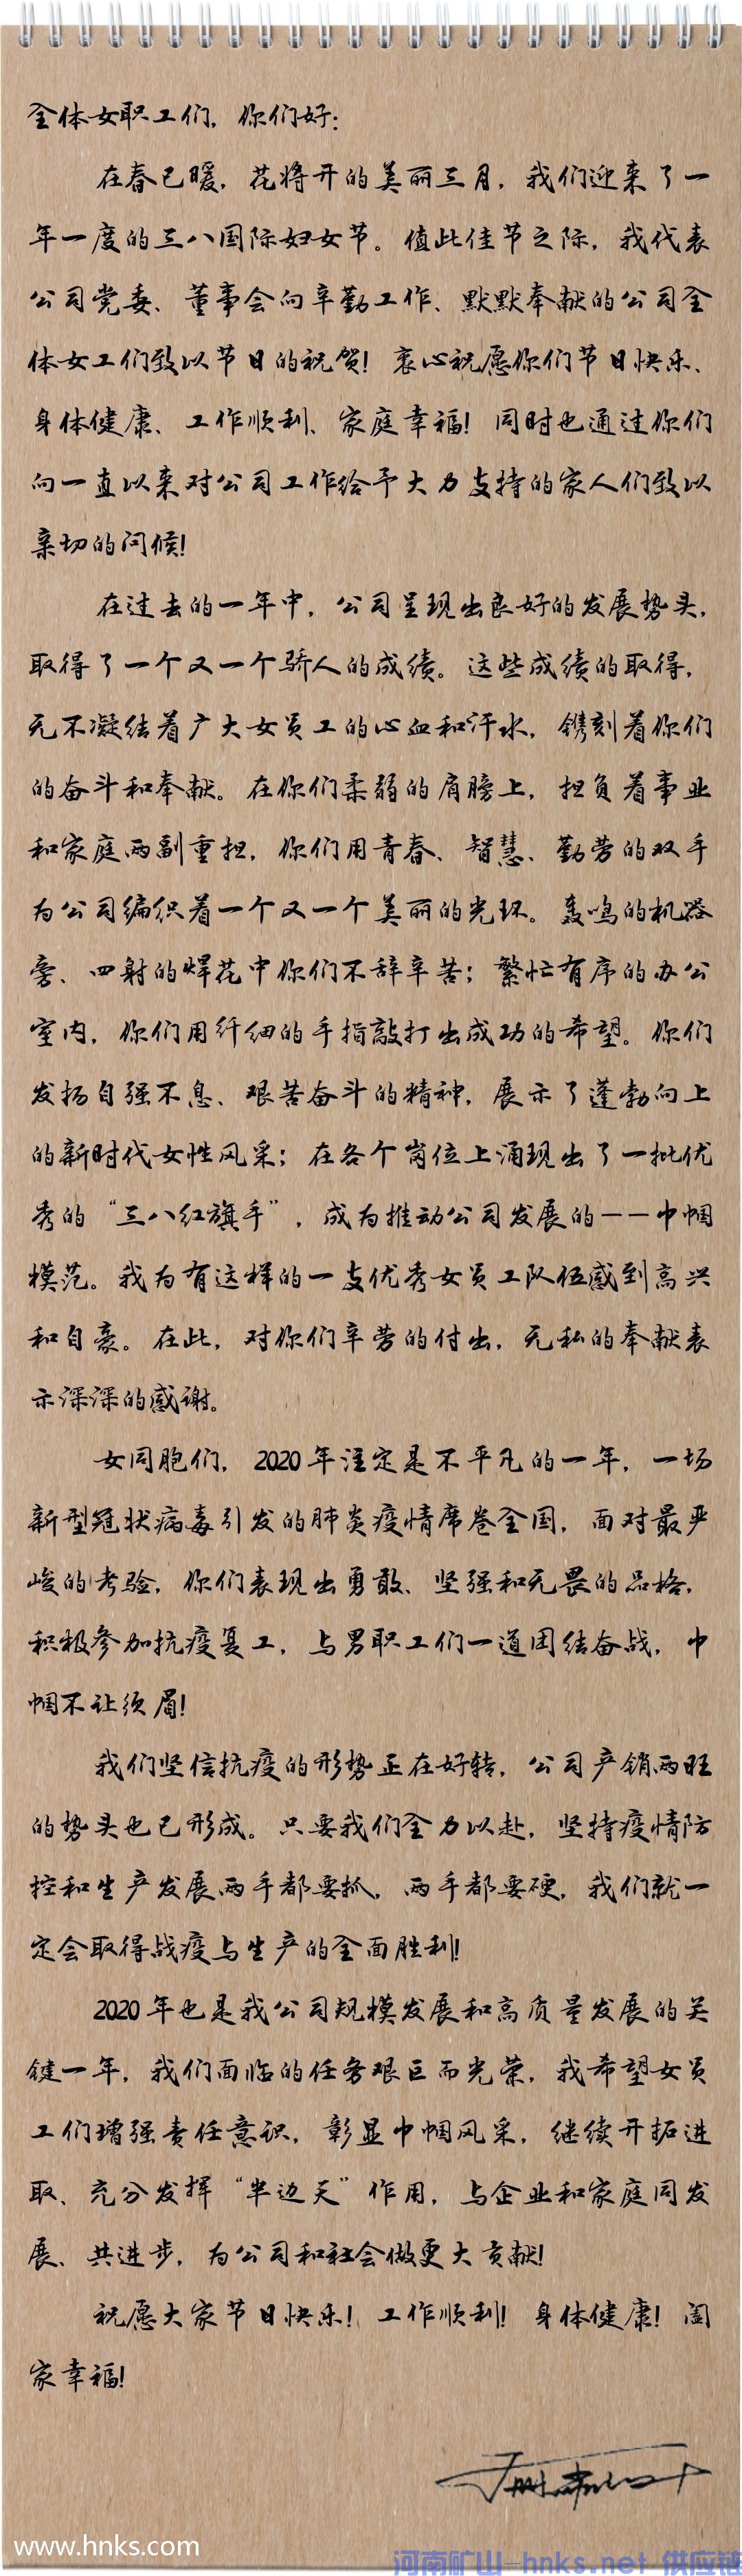 全体女职工们，你们好：
在春已暖，花将开的美丽三月，我们迎来了一
年一度的三八国际妇女节。值此佳节之际，我代表
公司党委、董事会向辛勤工作、默默奉献的公司全
体女工们致以节日的祝贺！衷心祝愿你们节日快乐、
身体健康、工作顺利、家庭幸福！同时也通过你们
向一直以来对公司工作给予大力支持的家人们致以
亲切的问候！
在过去的一年中，公司呈现出良好的发展势头，
取得了一个又一个骄人的成绩。这些成绩的取得，
无不凝结着广大女员工的心血和汗水，镌刻着你们
的奋斗和奉献。在你们柔弱的肩膀上，担负着事业
和家庭两副重担，你们用青春、智慧、勤劳的双手
为公司编织着一个又一个美丽的光环。轰鸣的机器
旁、四射的焊花中你们不辞辛苦；繁忙有序的办公
室内，你们用纤细的手指敲打出成功的希望。你们
发扬自强不息、艰苦奋斗的精神，展示了蓬勃向上
的新时代女性风采；在各个岗位上涌现出了一批优
秀的“三八红旗手”，成为推动公司发展的——巾帼
模范。我为有这样的一支优秀女员工队伍感到高兴
和自豪。在此，对你们辛劳的付出，无私的奉献表
示深深的感谢。
女同胞们，2020年注定是不平凡的一年，一场
新型冠状病毒引发的肺炎疫情席卷全国，面对最严
峻的考验，你们表现出勇敢、坚强和无畏的品格，
积极参加抗疫复工，与男职工们一道团结奋战，巾
帼不让须眉！
我们坚信抗疫的形势正在好转，公司产销两旺
的势头也已形成。只要我们全力以赴，坚持疫情防
控和生产发展两手都要抓，两手都要硬，我们就一
定会取得战疫与生产的全面胜利！
2020年也是我公司规模发展和高质量发展的关
键一年，我们面临的任务艰巨而光荣，我希望女员
工们增强责任意识，彰显巾帼风采，继续开拓进
取、充分发挥“半边天”作用，与企业和家庭同发
展、共进步，为公司和社会做更大贡献！
祝愿大家节日快乐！工作顺利！身体健康！阖
家幸福！
www.hnks.com
河南矿山-hnks.net 供应链